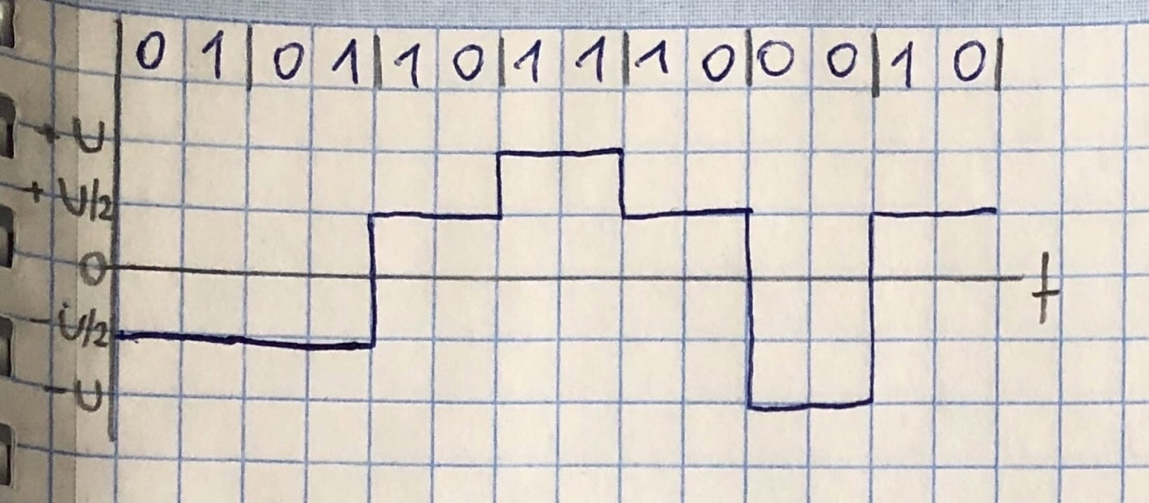 0 1 | 0 1 | 1 0 | 1 1 | 1 0 | 0 0 | 1 0 |
+U
+U/2
0
-U/2
-U
t